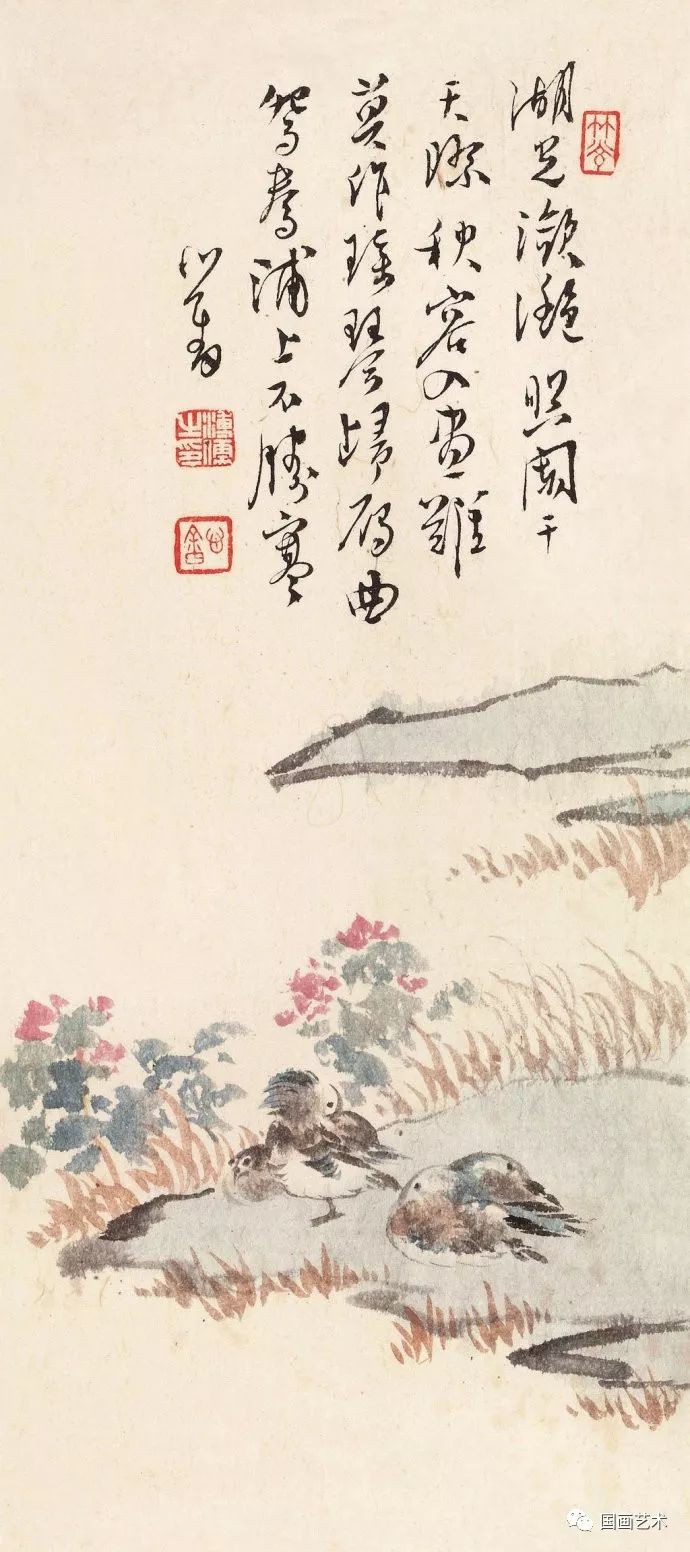 湖光潋滟照阑干
天际秋容入画难
莫作瑶琴归雁曲
鸳鸯浦上不胜寒
心畬
溥儒之印
国画艺术